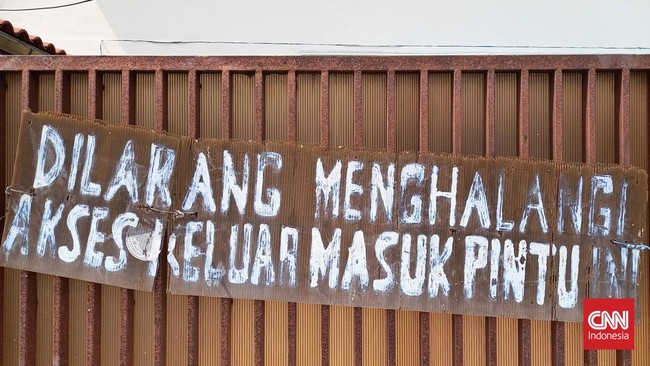 DILARANG MENGHALANGI
AKSES KELUAR MASUK PINTU INI
CNN
Indonesia